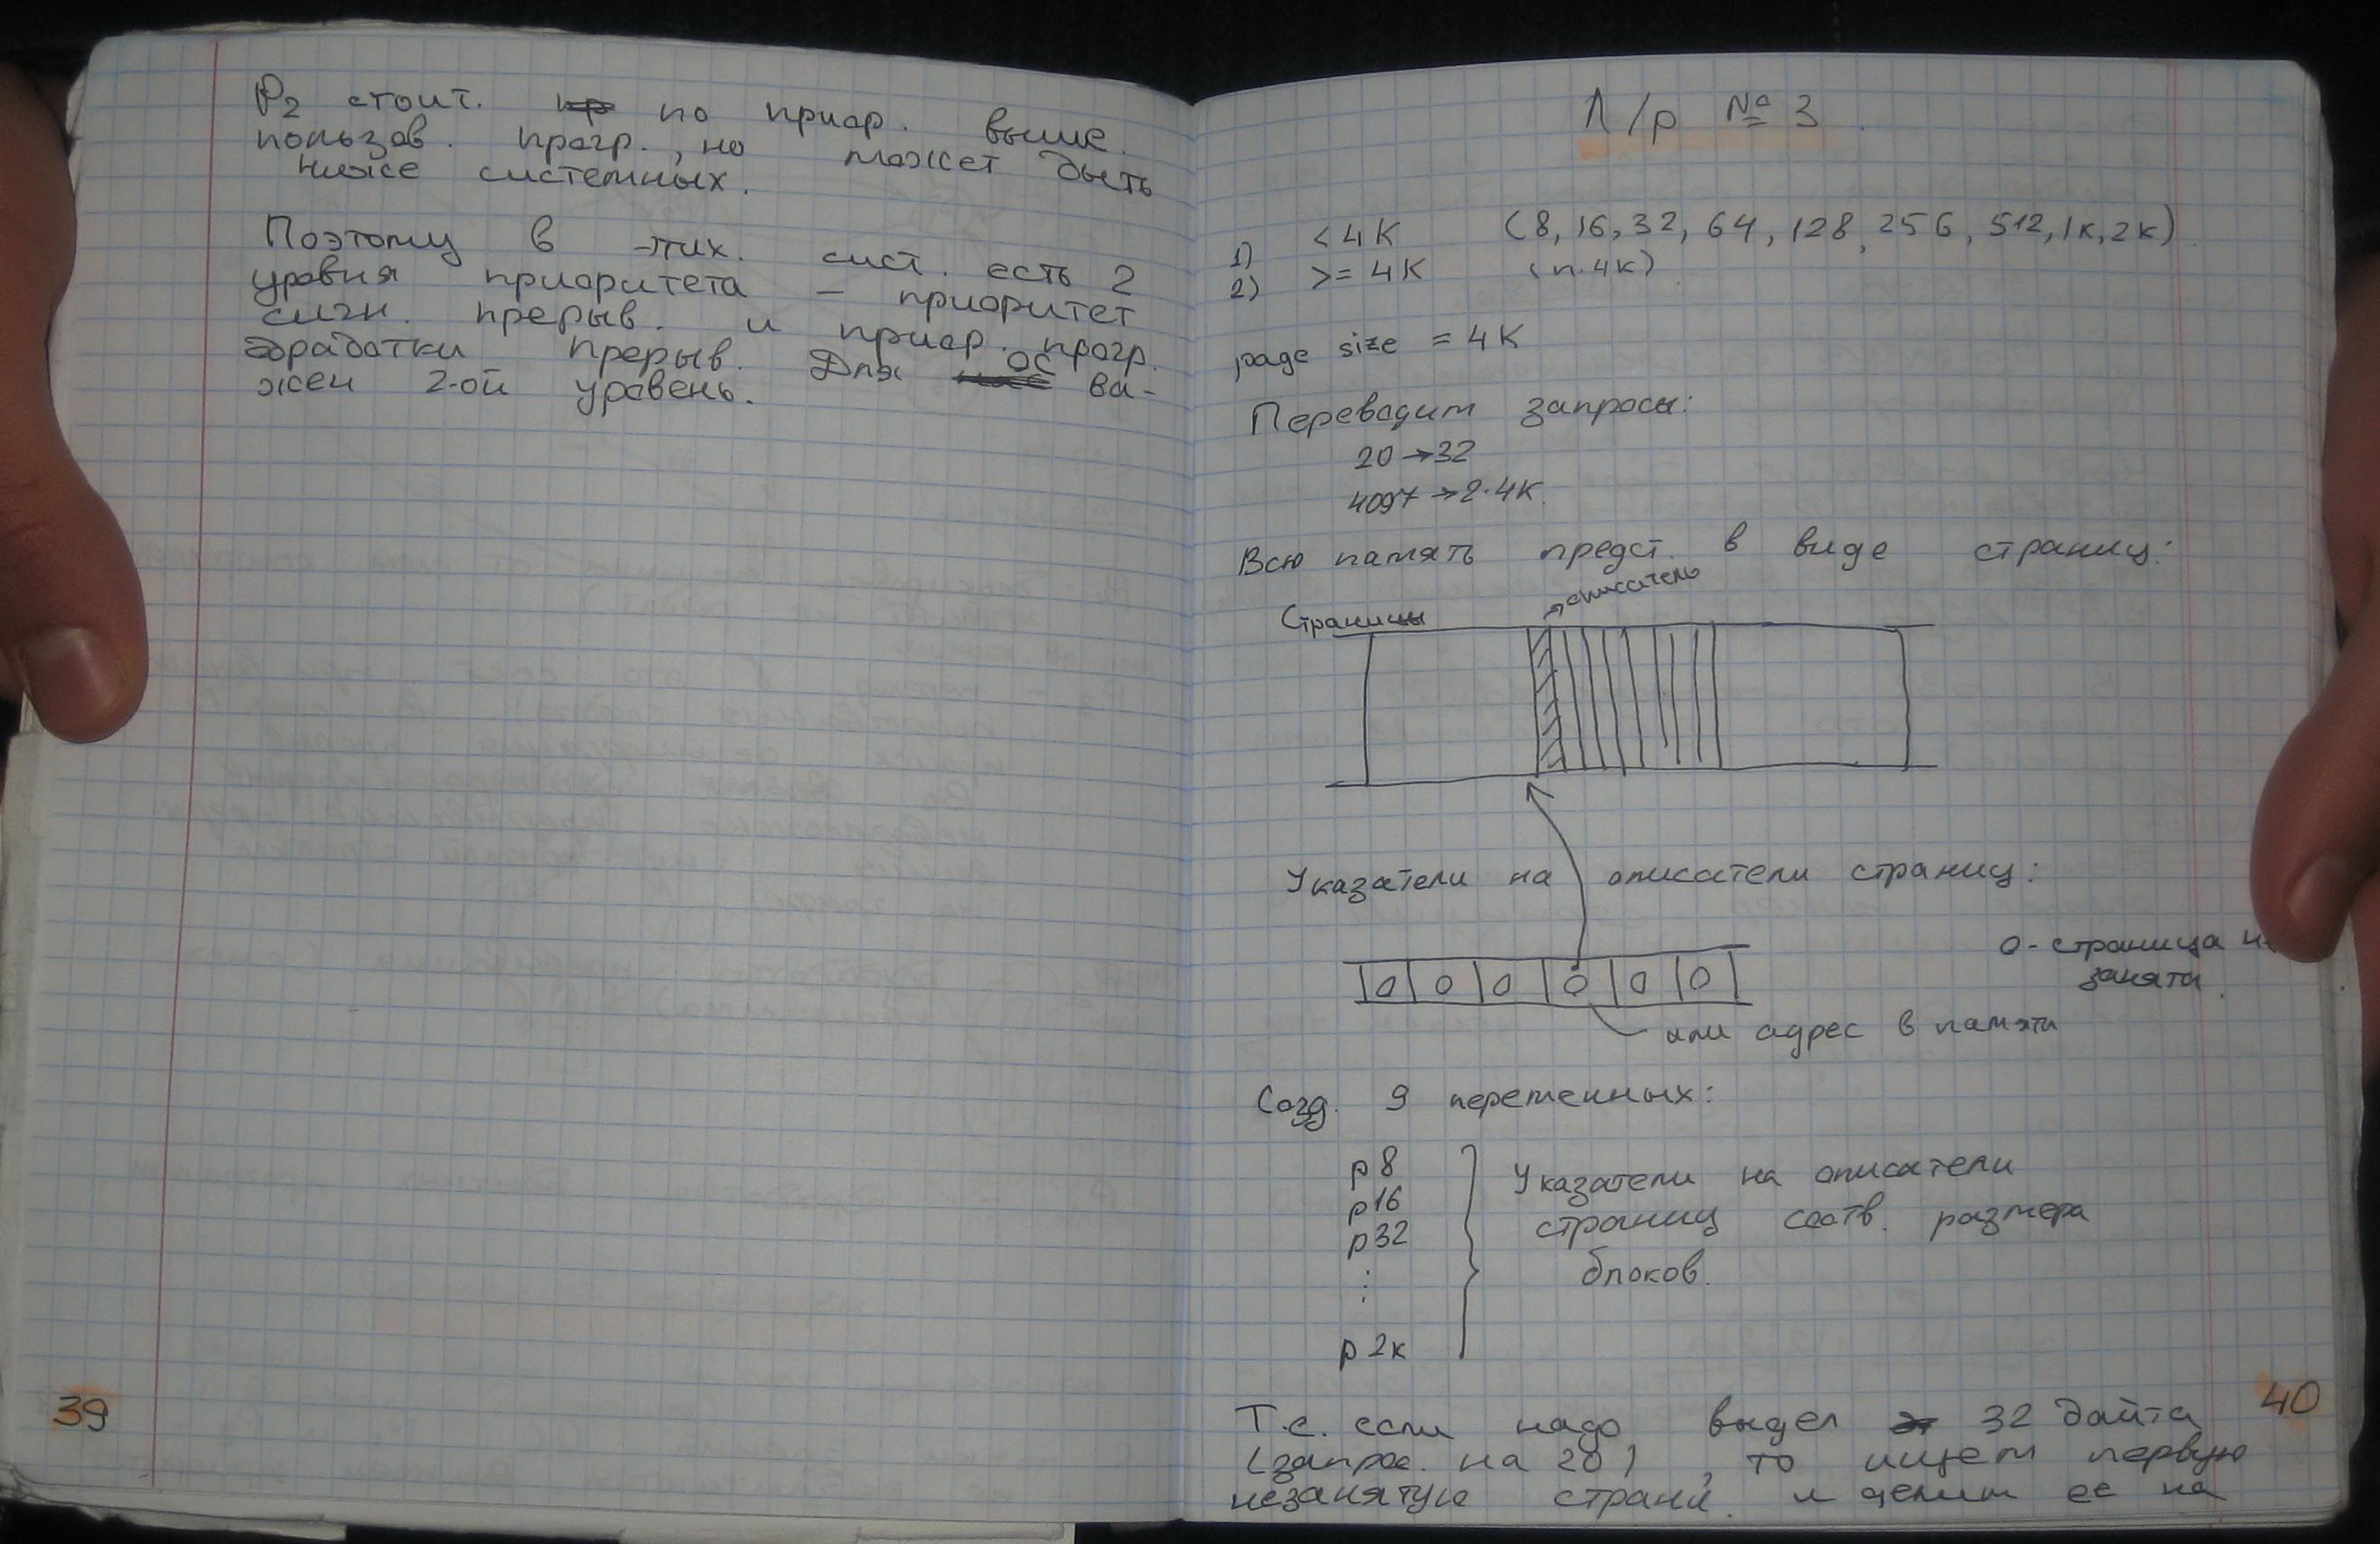 P2 стоит. по приор. выше
пользов. прогр., но может быть
ниже системных.
Поэтому в -тих. сист. есть 2
уровня приоритета – приоритет
сигн. прерыв. и приор. прогр.
обработки прерыв. Для ОС ва-
жен 2-ой уровень.
39
Л/р № 3.
1) < 4К (8, 16, 32, 64, 128, 256, 512, 1к, 2к).
2) >= 4К (п.4к)
page size = 4К
Переводим запросы:
20 → 32
4097 → 2·4К.
Всю память предст. в виде страниц:
Страницы
→ описатель
Указатели на описатели страниц:
0 - страница
занята.
0 0 0 0 0 0
или адрес в памяти
Созд. 9 переменных:
p8
p16
p32
⋮
p2к
Указатели на описатели
страниц соотв. размера
блоков.
Т.е. если надо выдел 32 байта
(запрос. на 20), то ищем первую
незанятую страниц. и делим ее на
40